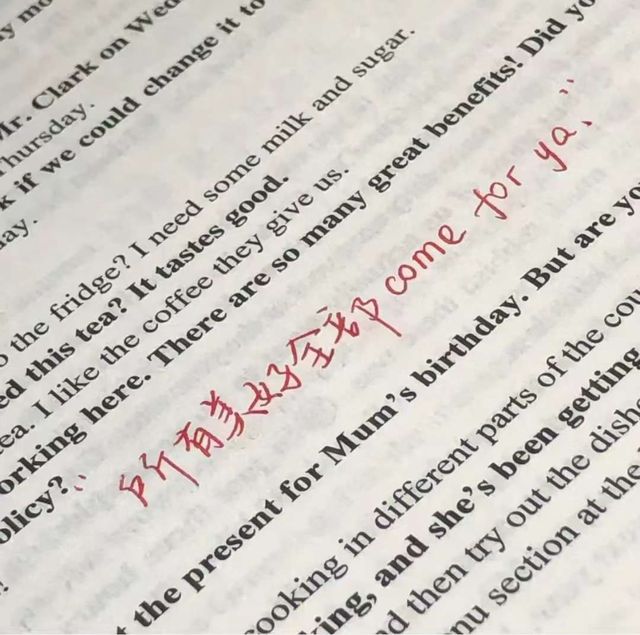 y mo
Mr. Clark on Wed
Thursday.
k if we could change it to
day.
o the fridge? I need some milk and sugar.
ed this tea? It tastes good.
ea. I like the coffee they give us.
orking here. There are so many great benefits! Did yo
olicy?
"所有美好全部come for ya."
t the present for Mum's birthday. But are you
cooking in different parts of the cou
king, and she's been getting
d then try out the dish
nu section at the